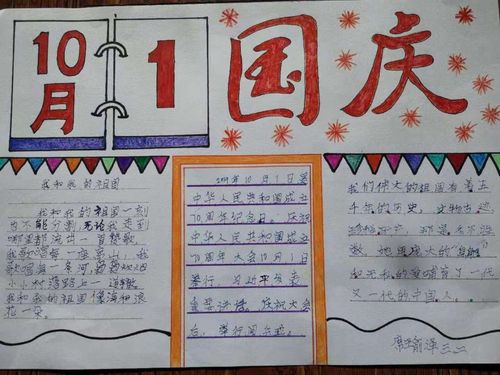 10月
1
国庆
我和我的祖国
我和我的祖国一刻
也不能分割,无论我走到
哪里都流出一首赞歌。
我歌唱每一座高山,我
歌唱每一条河,
小小村落,路上一道辙
我和我的祖国像海和浪
花一朵。
2019年10月1日是
中华人民共和国成立
70周年纪念日。庆祝
中华人民共和国成立
70周年大会10月1日
举行,习近平发表
重要讲话。庆祝大会
后,举行阅兵
我们伟大的祖国有着五
千年的历史,
代又一代的中国人。
三二